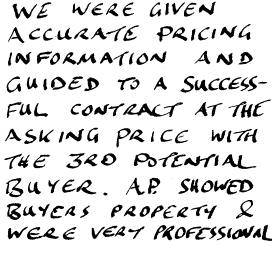 WE WERE GIVEN
ACCURATE PRICING
INFORMATION AND
GUIDED TO A SUCCESS-
FUL CONTRACT AT THE
ASKING PRICE WITH
THE 3RD POTENTIAL
BUYER. A.P. SHOWED
BUYERS PROPERTY &
WERE VERY PROFESSIONAL